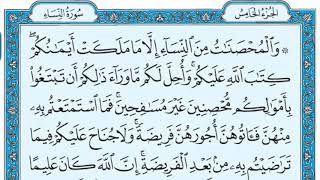 الجزء الخامس سورة النساء
۞ وَٱلْمُحْصَنَٰتُ مِنَ ٱلنِّسَآءِ إِلَّا مَا مَلَكَتْ أَيْمَٰنُكُمْ ۖ
كِتَٰبَ ٱللَّهِ عَلَيْكُمْ ۚ وَأُحِلَّ لَكُم مَّا وَرَآءَ ذَٰلِكُمْ أَن تَبْتَغُوا۟
بِأَمْوَٰلِكُم مُّحْصِنِينَ غَيْرَ مُسَٰفِحِينَ ۚ فَمَا ٱسْتَمْتَعْتُم بِهِۦ
مِنْهُنَّ فَـَٔاتُوهُنَّ أُجُورَهُنَّ فَرِيضَةً ۚ وَلَا جُنَاحَ عَلَيْكُمْ فِيمَا
تَرَٰضَيْتُم بِهِۦ مِنۢ بَعْدِ ٱلْفَرِيضَةِ ۚ إِنَّ ٱللَّهَ كَانَ عَلِيمًا